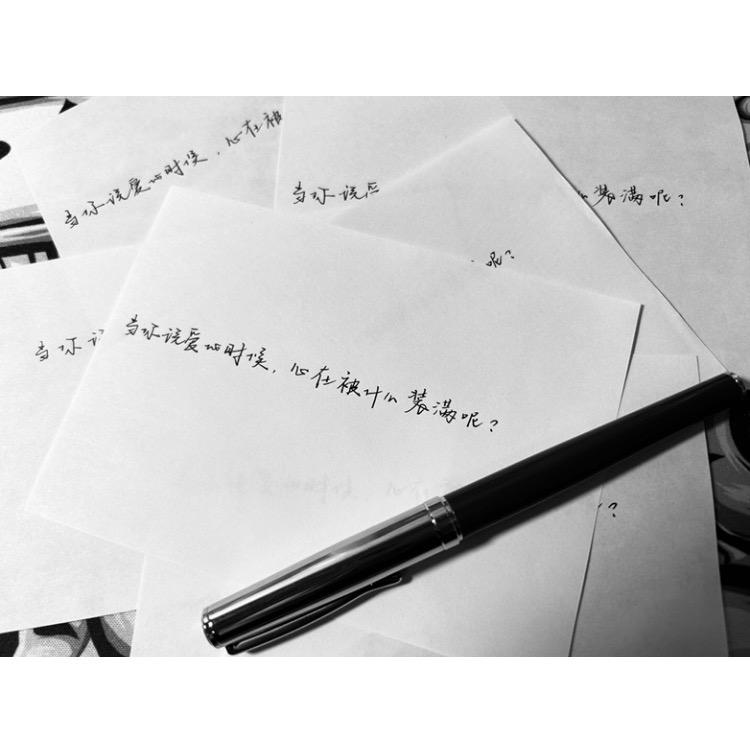 当你说爱的时候，心在被
当你说
装满呢？
呢？
当你说
当你说爱的时候，心在被什么装满呢？
？